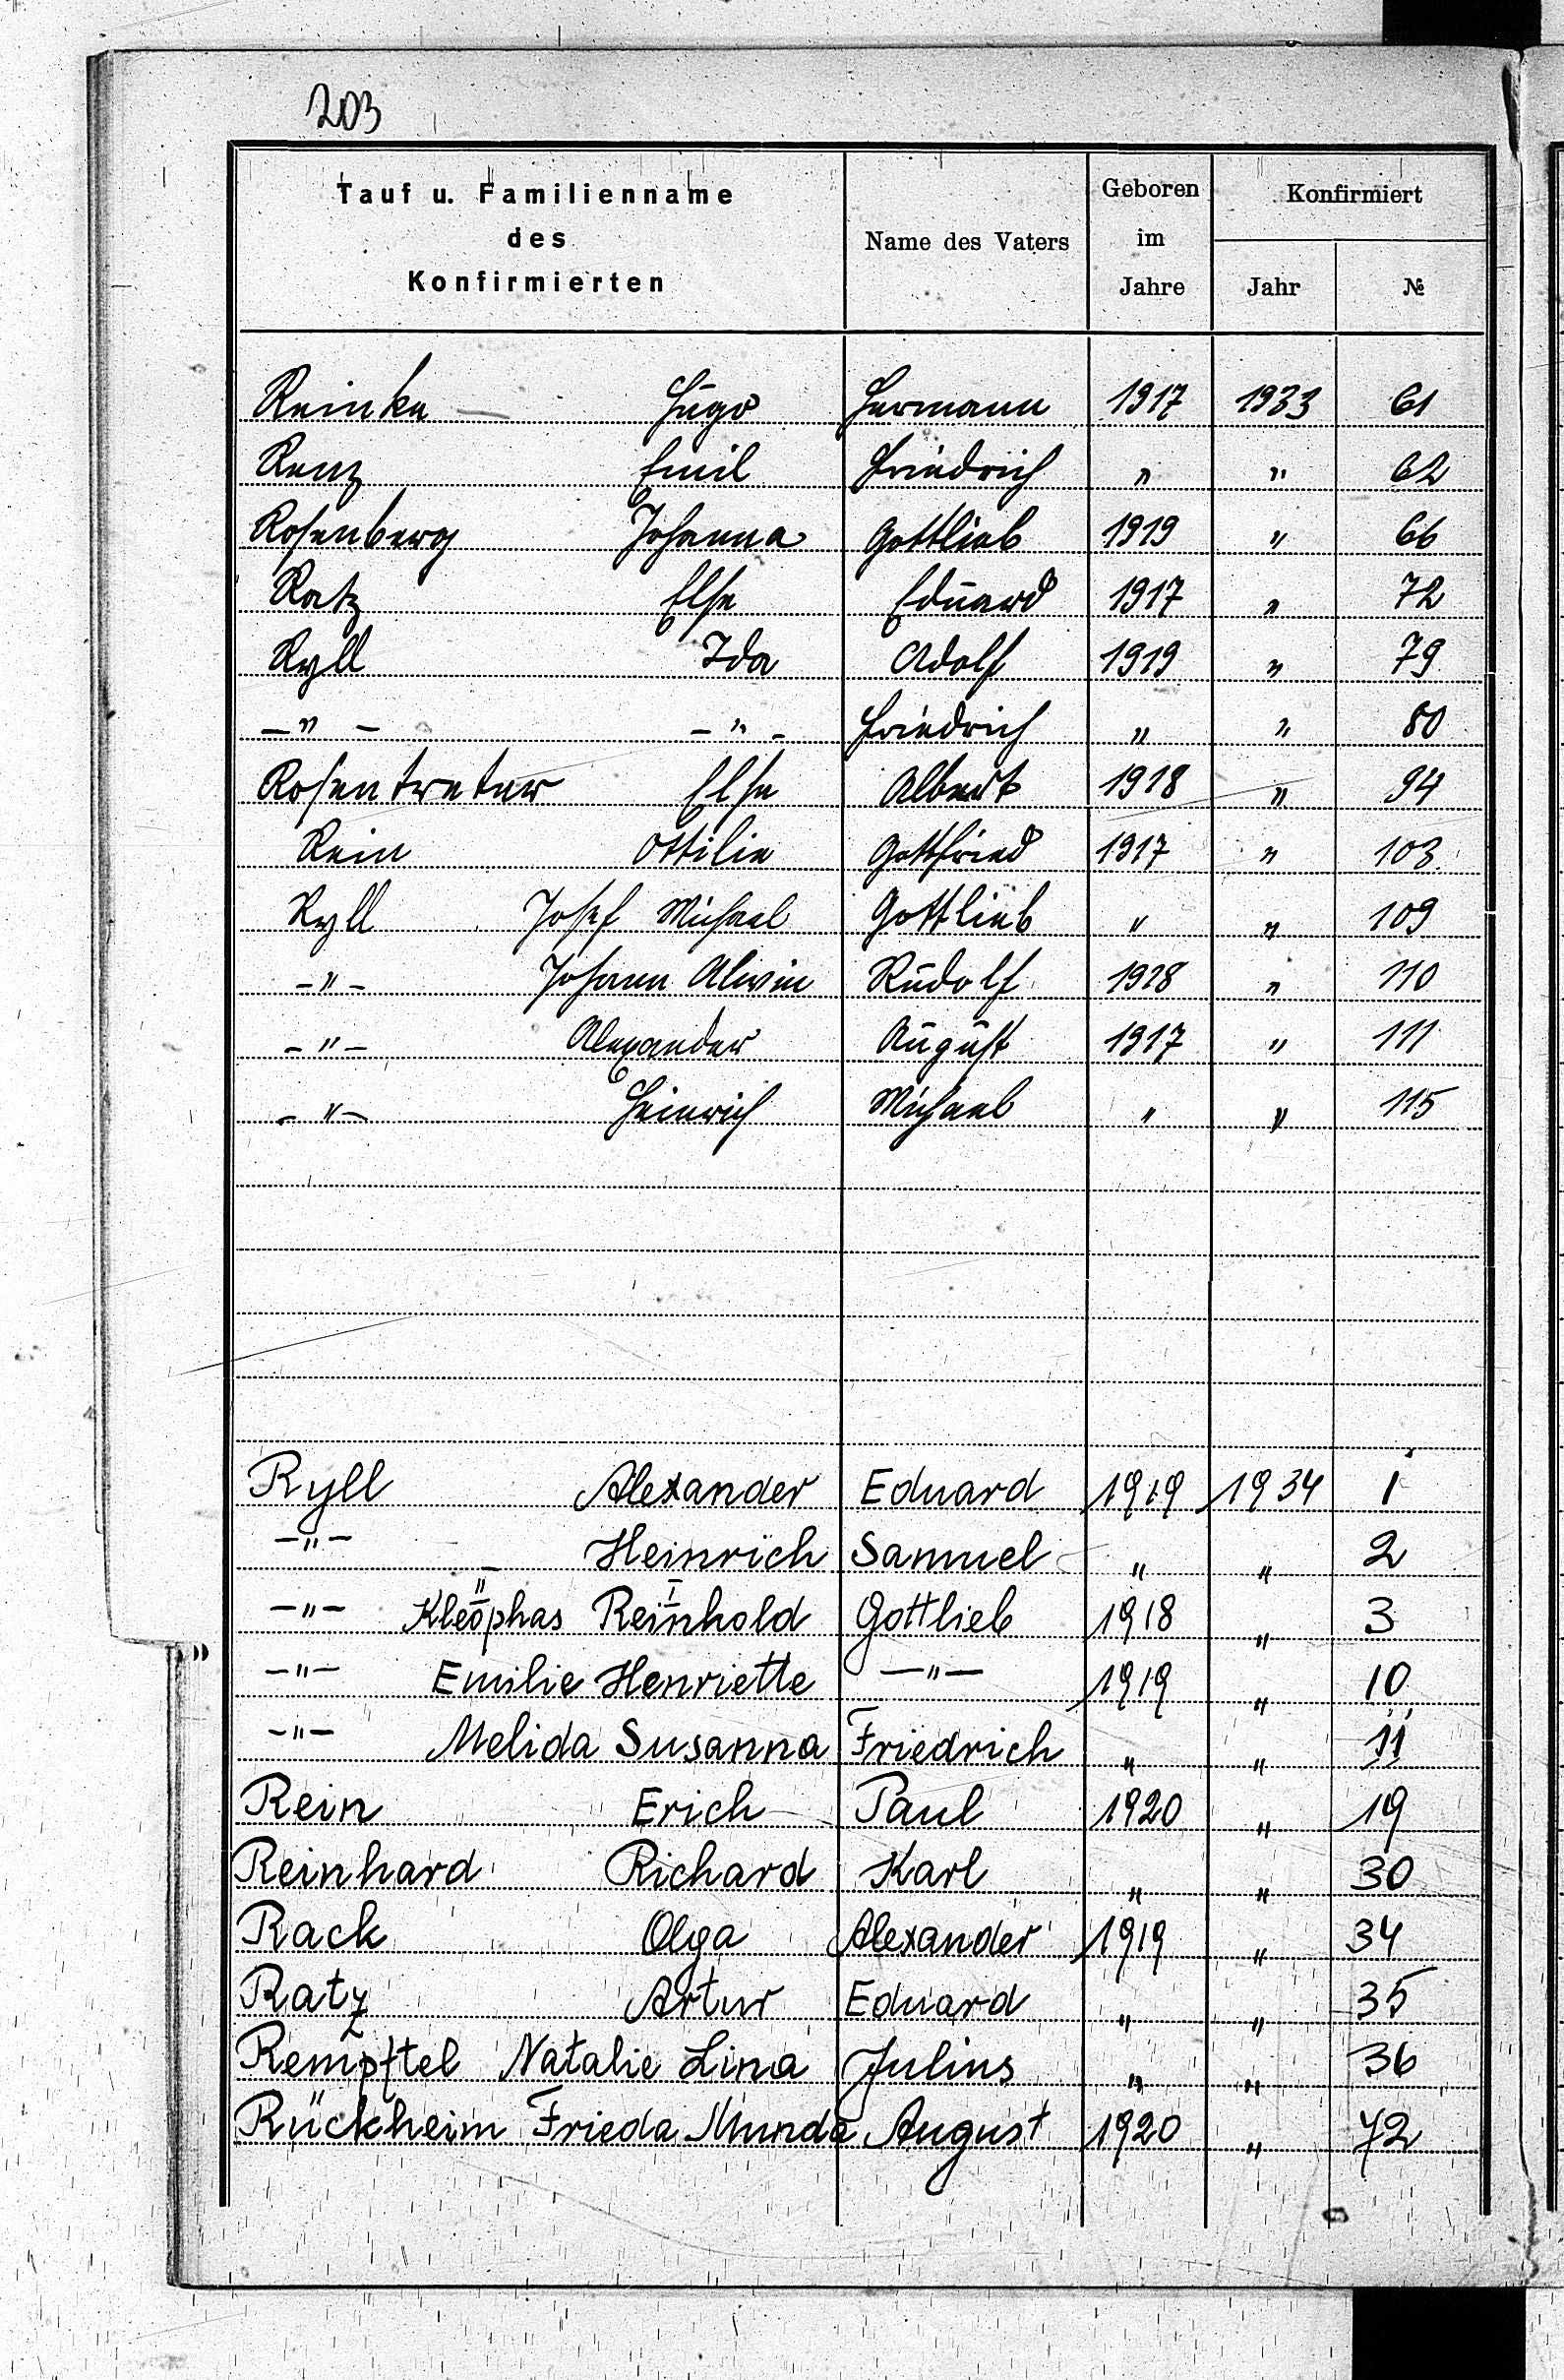 203
Tauf u. Familienname des Konfirmierten Name des Vaters Geboren im Jahre Konfirmiert Jahr №
Reinke Hugo Hermann 1917 1933 61
Renz Emil Friedrich " " 62
Rosenberg Johanna Gottlieb 1919 " 66
Ratz Else Eduard 1917 " 72
Ryll Ida Adolf 1919 " 79
-"- -"- Friedrich " " 80
Rosentreter Else Albert 1918 " 94
Rein Ottilie Gottfried 1917 " 103
Ryll Josef Michael Gottlieb " " 109
-"- Johann Alwin Rudolf 1918 " 110
-"- Alexander August 1917 " 111
-"- Heinrich Michael " " 115
Ryll Alexander Eduard 1919 1934 1
-"- Heinrich Samuel " " 2
-"- Kleophas Reinhold Gottlieb 1918 " 3
-"- Emilie Henriette -"- 1919 " 10
-"- Melida Susanna Friedrich " " 11
Rein Erich Paul 1920 " 19
Reinhard Richard Karl " " 30
Rack Olga Alexander 1919 " 34
Ratz Artur Eduard " " 35
Rempftel Natalie Lina Julius " " 36
Rückheim Frieda Munda August 1920 " 72